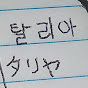 탈리아
タリヤ